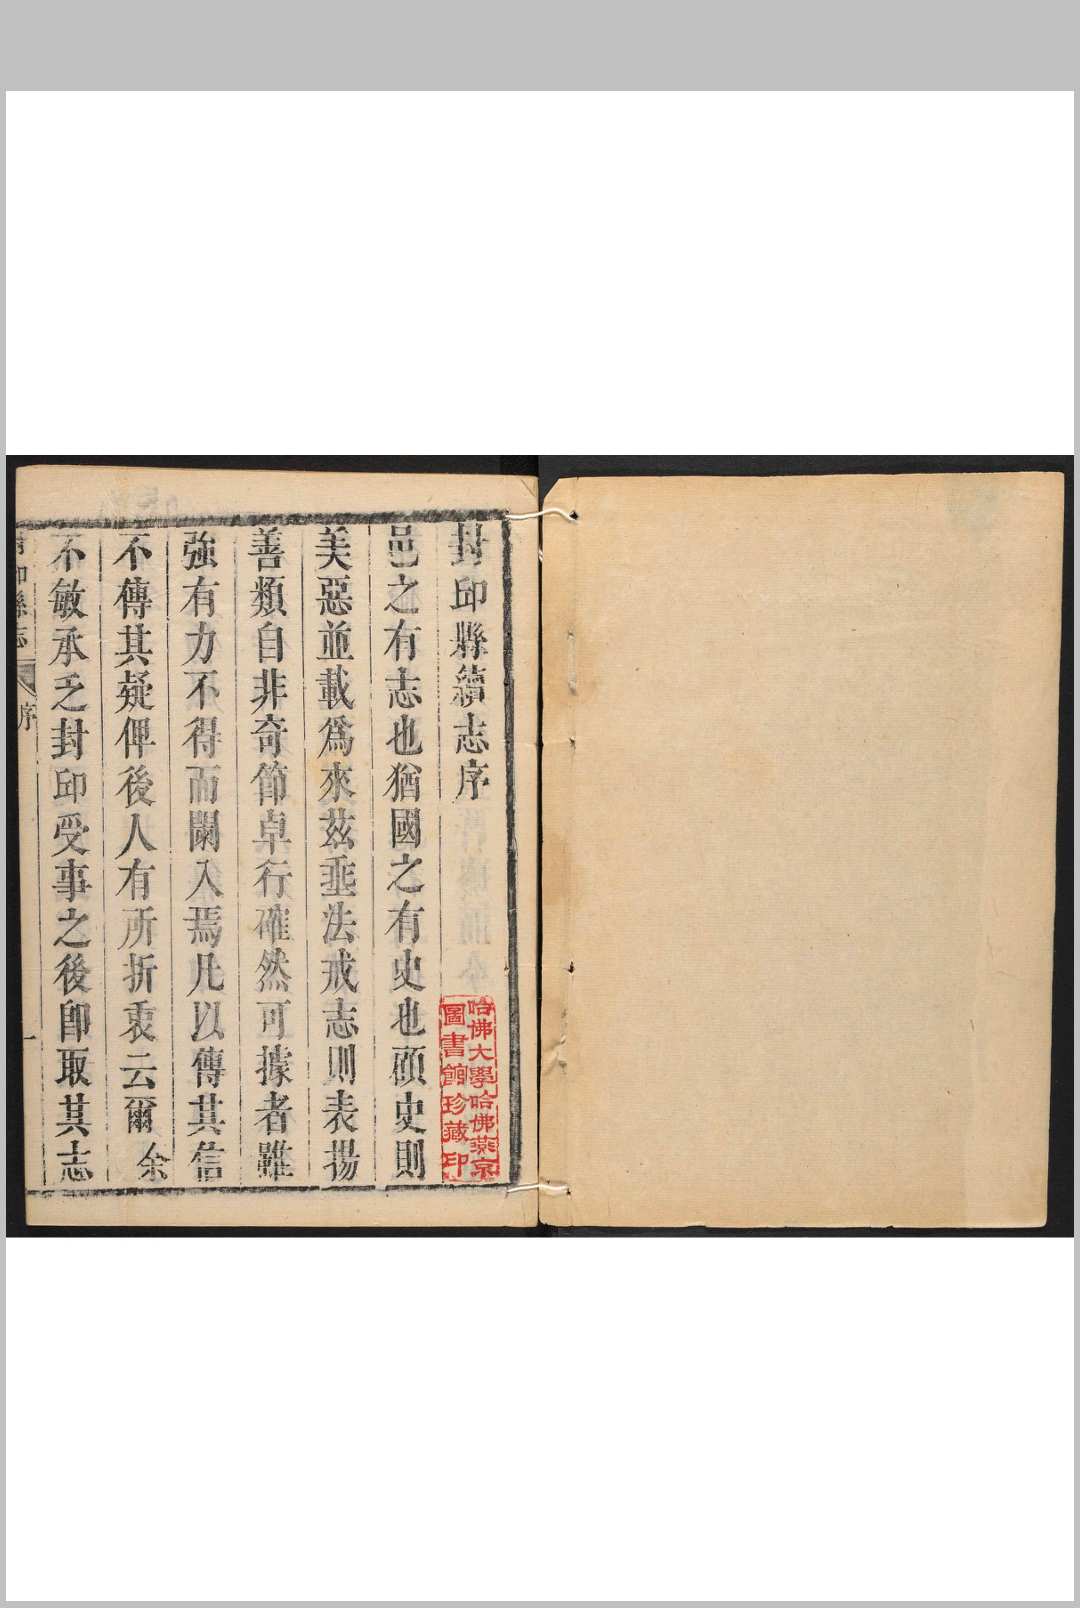 封印縣續志序
哈佛大學哈佛燕京
圖書館珍藏印
邑之有志也猶國之有史也顧史則
美惡並載爲來茲垂法戒志則表揚
善類自非奇節卓行確然可據者雖
強有力不得而闌入焉凡以傳其信
不傳其疑俾後人有所折衷云爾余
不敏承乏封印受事之後卽取其志
印縣志 序 一